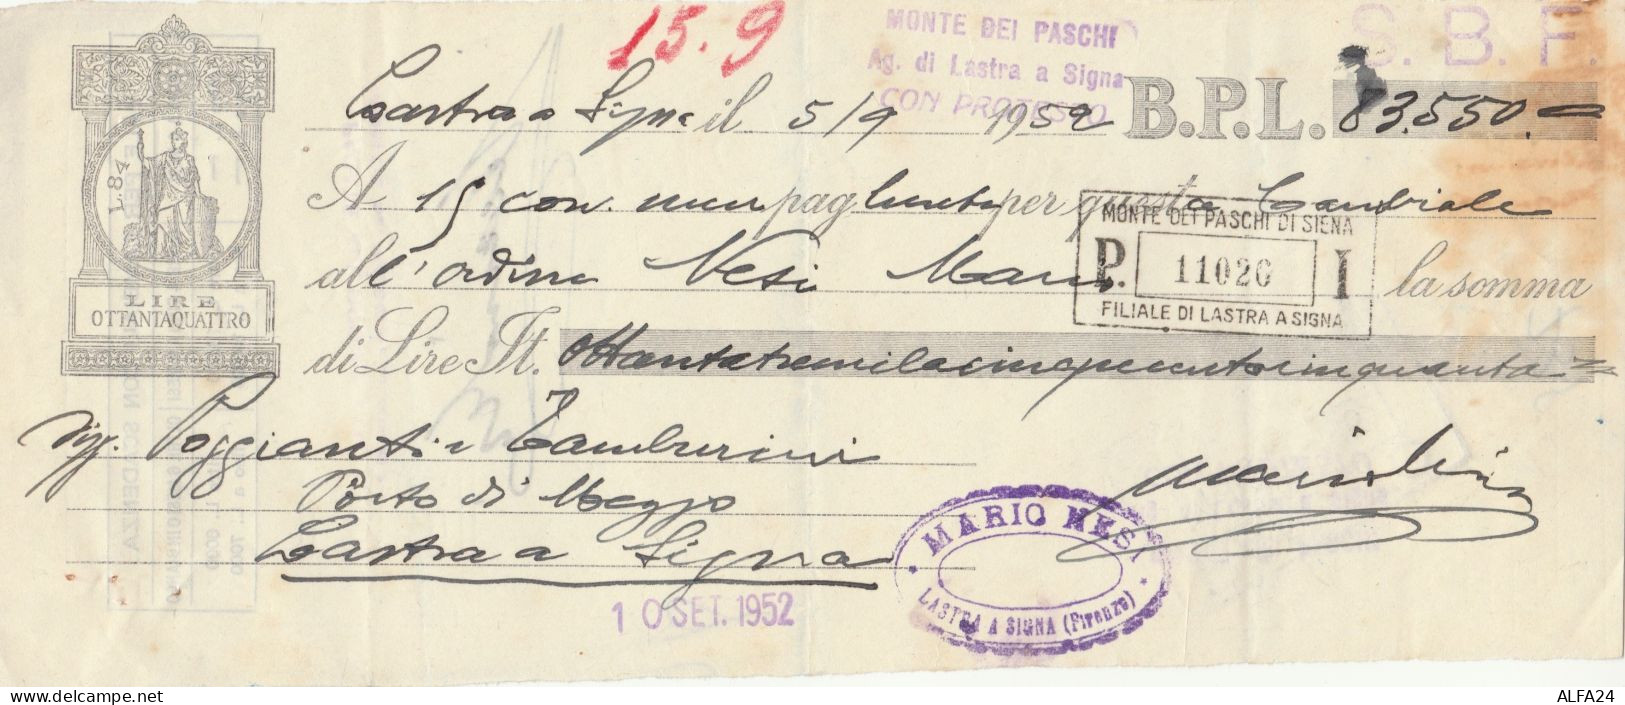 15.9
MONTE DEI PASCHI
Ag. di Lastra a Signa
CON PROTESTO
S. B. F.
Lastra a Signa il 5/9 1952 B.P.L. 83.550.=
L.84
LIRE
OTTANTAQUATTRO
A 15 corr. pag per questa Cambiale
all'ordine Nesi Mario la somma
MONTE DEI PASCHI DI SIENA
P. 11026 I
FILIALE DI LASTRA A SIGNA
di Lire It. Ottantatremilacinquecentocinquanta =
Sigg. Poggianti e Tamburini
Porto di Mezzo
Lastra a Signa
MARIO NESI
LASTRA A SIGNA (Firenze)
10 SET. 1952
www.delcampe.net
ALFA24